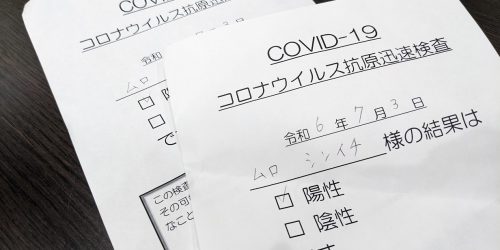 COVID-19
コロナウイルス抗原迅速検査
令和 6 年 7 月 3 日
ムロ シンイチ 様の結果は
陽性
陰性
です
COVID-19
コロナウイルス抗
令和
ムロ
陽
で
この検査
その可
なこと